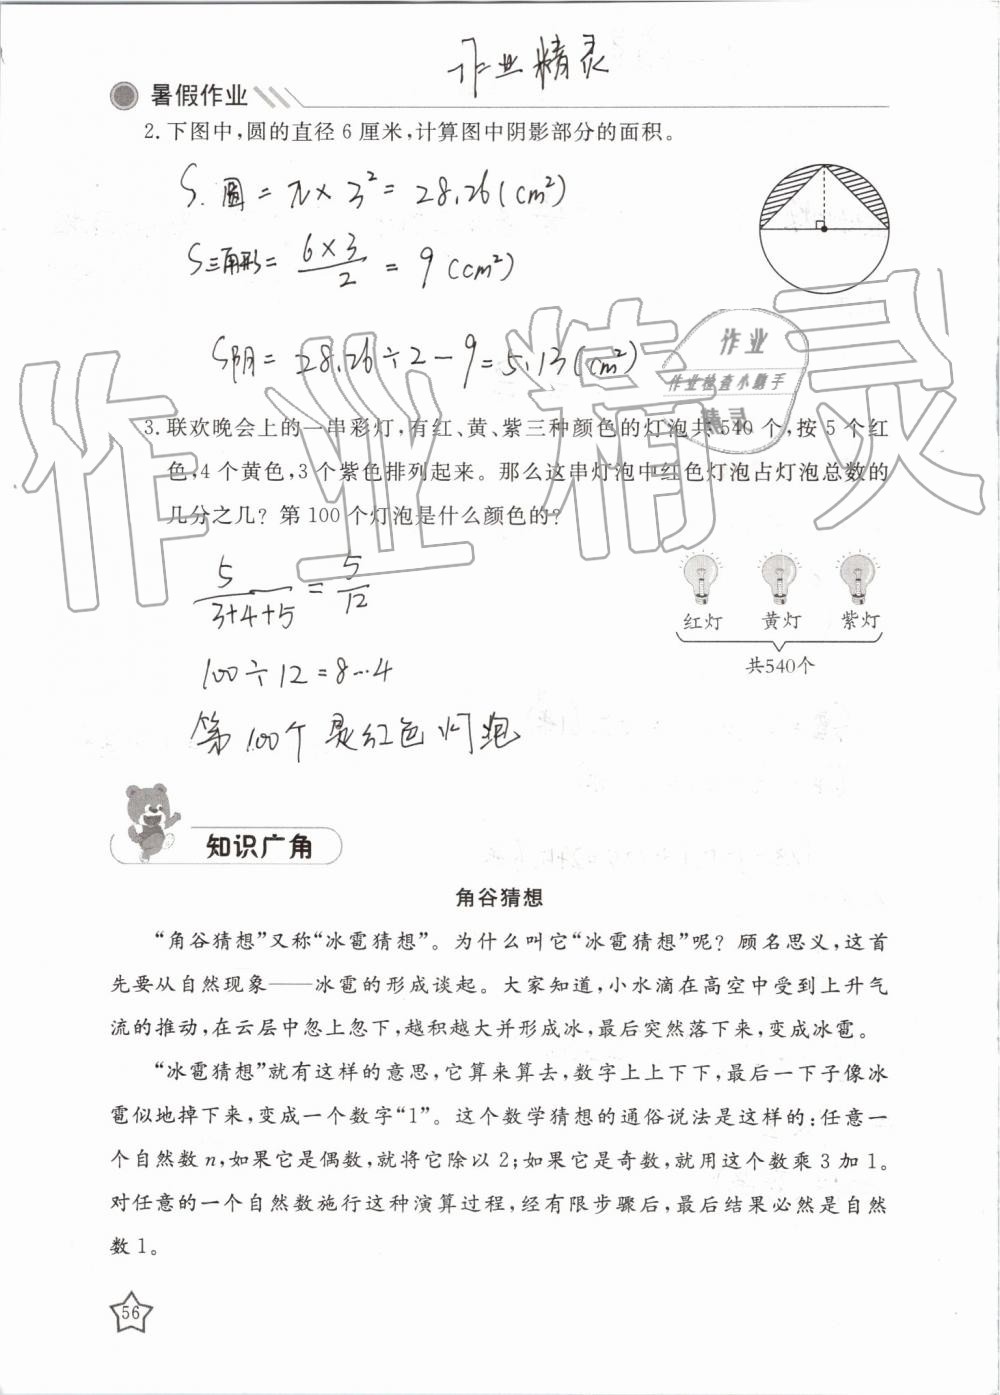 作业精灵
暑假作业
2. 下图中,圆的直径 6 厘米,计算图中阴影部分的面积。
S.圆=π×3²=28.26(cm²)
S三角形=6×3/2=9(cm²)
S阴=28.26÷2-9=5.13(cm²)
作业
作业检查小助手
精灵
作业精灵
3. 联欢晚会上的一串彩灯,有红、黄、紫三种颜色的灯泡共 540 个,按 5 个红
色,4 个黄色,3 个紫色排列起来。那么这串灯泡中红色灯泡占灯泡总数的
几分之几? 第 100 个灯泡是什么颜色的?
5/3+4+5=5/12
红灯 黄灯 紫灯
共540个
100÷12=8…4
第100个是红色灯泡
知识广角
角谷猜想
“角谷猜想”又称“冰雹猜想”。为什么叫它“冰雹猜想”呢? 顾名思义,这首
先要从自然现象——冰雹的形成谈起。大家知道,小水滴在高空中受到上升气
流的推动,在云层中忽上忽下,越积越大并形成冰,最后突然落下来,变成冰雹。
“冰雹猜想”就有这样的意思,它算来算去,数字上上下下,最后一下子像冰
雹似地掉下来,变成一个数字“1”。这个数学猜想的通俗说法是这样的:任意一
个自然数 n,如果它是偶数,就将它除以 2;如果它是奇数,就用这个数乘 3 加 1。
对任意的一个自然数施行这种演算过程,经有限步骤后,最后结果必然是自然
数 1。
56